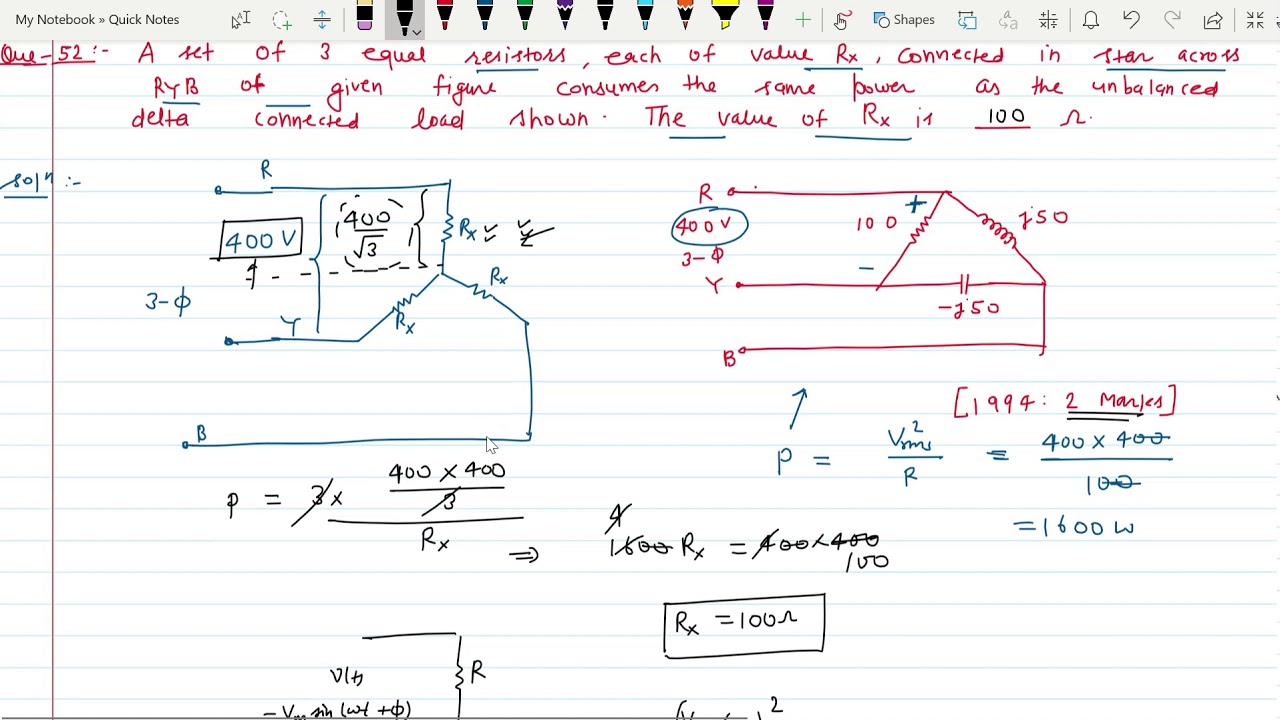 My Notebook » Quick Notes
Shapes
Que-52:- A set of 3 equal resistors, each of value Rx, connected in star across
RYB of given figure consumes the same power as the unbalanced
delta connected load shown. The value of Rx is 100 Ω.
Solⁿ :-
R
400 V
400/√3
Rx
Rx
Rx
3-ϕ
Y
B
R
400 V
3-ϕ
100
+
-
j50
Y
-j50
B
[1994: 2 Marks]
P = Vrms²/R = 400 × 400 / 100
= 1600 W
P = 3 × (400 × 400 / 3) / Rx
⇒ 1600 Rx = 400 × 400
4
100
Rx = 100Ω
R
V(t)
= Vm sin(ωt + ϕ)